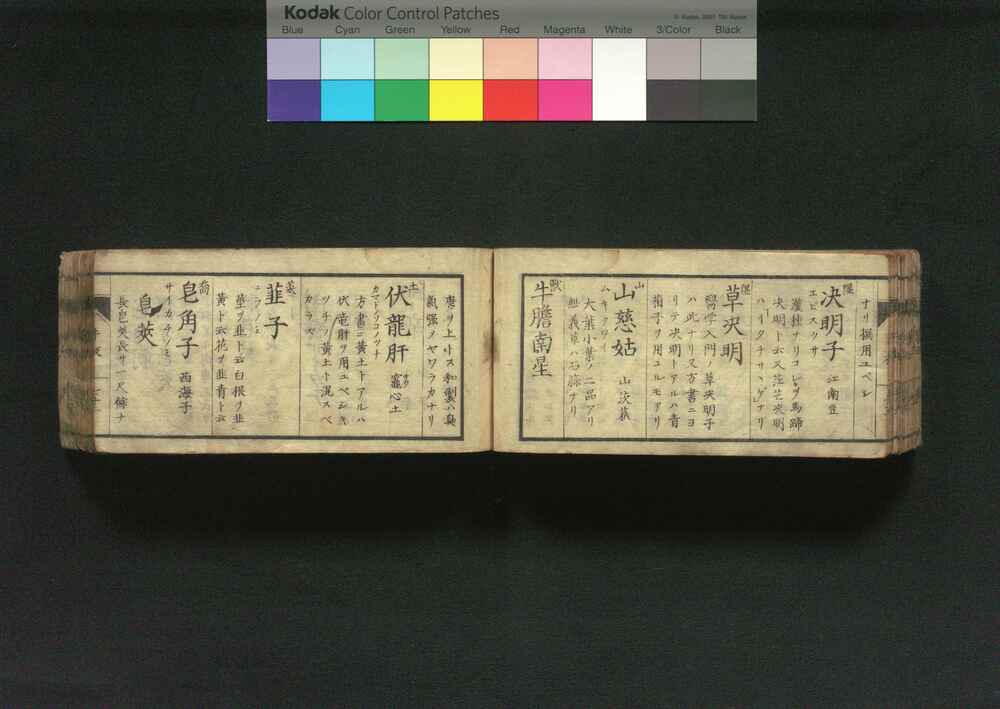 Kodak Color Control Patches
Blue Cyan Green Yellow Red Magenta White 3/Color Black
ナリ撰用ユベシ
決明子 江南豆
エビスグサ
決明ト云又茳芒決明
草決明
醫学入門 草決明子
ハ此ナリ又方書ニヨ
リテ決明トアルハ青
葙子ヲ用ユルモアリ
山 山慈姑 山茨菰
大葉小葉ノ二品アリ
獣 牛膽南星
唐ヲ上トス和製ハ臭
氣強シヤワラカナリ
土 伏龍肝 竈心土
方書ニ黄土トアルハ
伏竜肝ヲ用ユベシキ
ツチノ黄土ト混スベ
カラズ
韮子
ニラノミ
莖ヲ韮ト云白根ヲ韮
黄ト云花ヲ韮青ト云
喬 皂角子 西海子
サイカチノミ
皂莢
長皂莢長サ一尺餘ナ